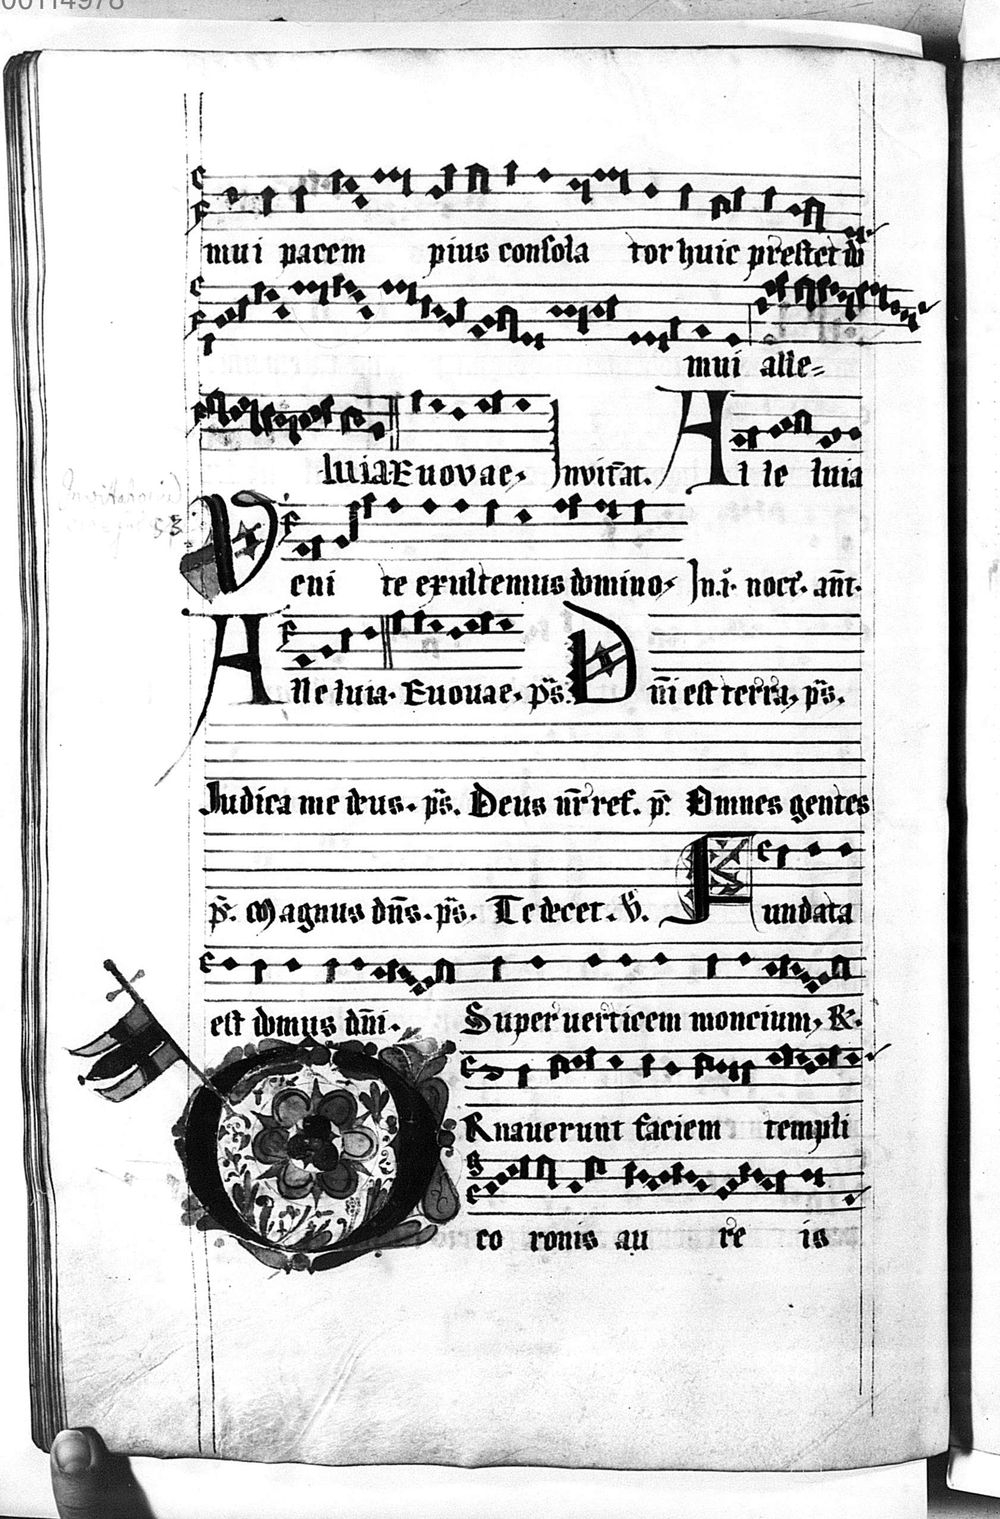 00114978
mui pacem pius consola tor huic prestet do
mui alle=
luia Euovae, Invitat. Al le luia
53
Veni te exultemus domino, In .i. noct. ant.
Alle luia. Euouae. ps. Dni est terra, ps.
Iudica me deus. ps. Deus nr ref. p. Omnes gentes
ps. Magnus dns. ps. Te decet. v. Fundata
est domus dni. Super uerticem moncium, R.
ORnauerunt faciem templi
co ronis au re is